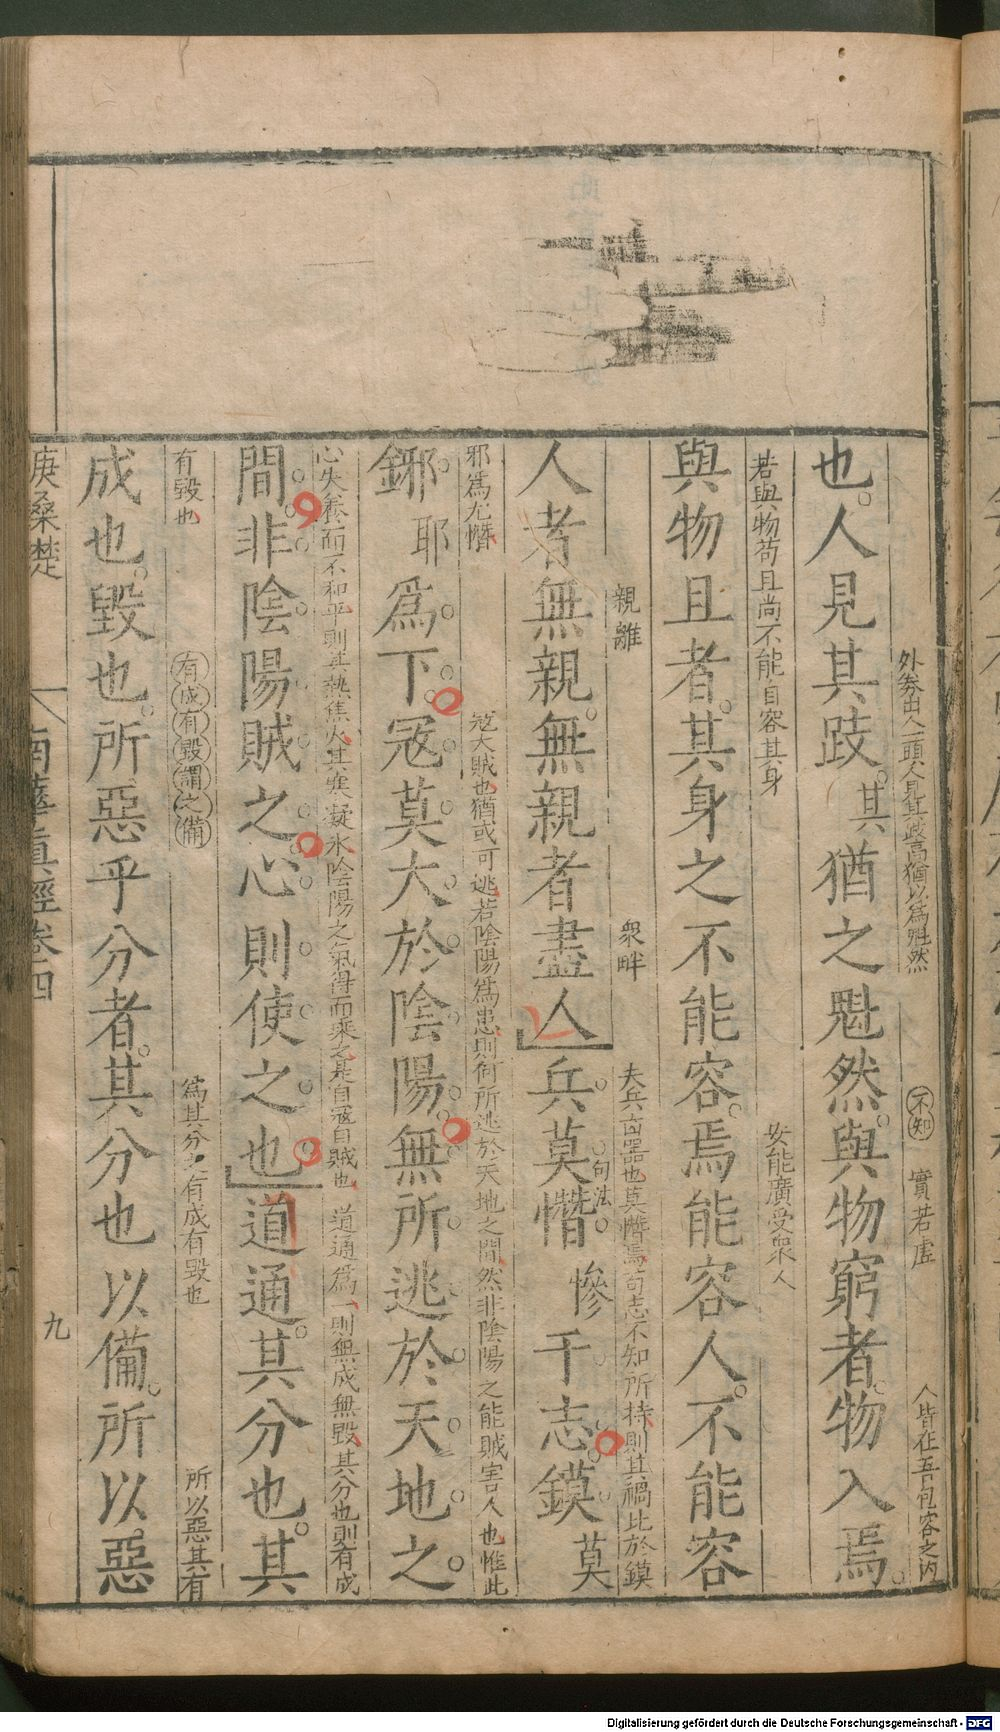 外券出人一頭人見其跂高猶以爲魁然 不知 實若虛 人皆在吾包容之內
也人見其跂其猶之魁然與物窮者物入焉
若與物苟且尚不能自容其身 安能廣受衆人
與物且者其身之不能容焉能容人不能容
親離 衆畔 夫兵凶器也莫憯焉苟志不知所持則其禍比於鏌
人者無親無親者盡人兵莫憯慘于志鏌莫
句法
邪爲尤憯 寇大賊也猶或可逃若陰陽爲患則何所逃於天地之間然非陰陽之能賊害人也惟此
鋣耶爲下寇莫大於陰陽無所逃於天地之
心失養而不和平則其熱焦火其寒凝氷陰陽之氣得而乘之是自寇自賊也 道通爲一則無成無毀其分也則有成
間非陰陽賊之心則使之也道通其分也其
有毀也 有成有毀謂之備 爲其分之有成有毀也 所以惡其有
成也毀也所惡乎分者其分也以備所以惡
庚桑楚 南華眞經卷四 九
Digitalisierung gefördert durch die Deutsche Forschungsgemeinschaft - DFG